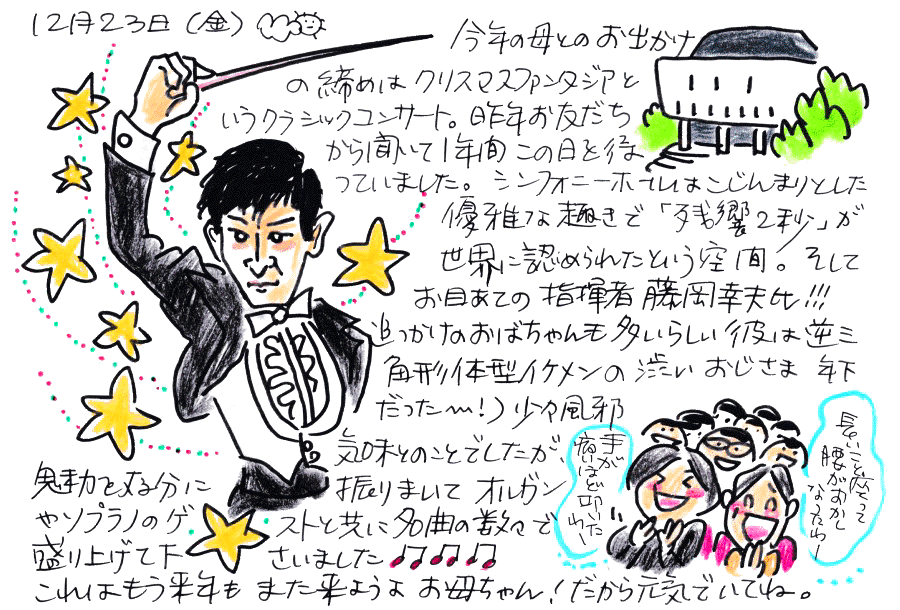 12月23日（金）
今年の母とのお出かけ
の締めはクリスマスファンタジアと
いうクラシックコンサート。昨年お友だち
から聞いて1年間この日を待
っていました。シンフォニーホールはこじんまりとした
優雅な趣きで「残響2秒」が
世界に認められたという空間。そして
お目あての指揮者藤岡幸夫氏!!!
追っかけのおばちゃんも多いらしい彼は逆三
角形体型イケメンの渋いおじさま 年下
だった〜!）少々風邪
気味とのことでしたが
魅力を充分に振りまいてオルガン
やソプラノのゲストと共に名曲の数々で
盛り上げて下さいました♪♪♪♪♪
これはもう来年もまた来ようよお母ちゃん!だから元気でいてね。
手が
痛いほど叩いたわー
長いこと座って
腰がおかし
なったわー